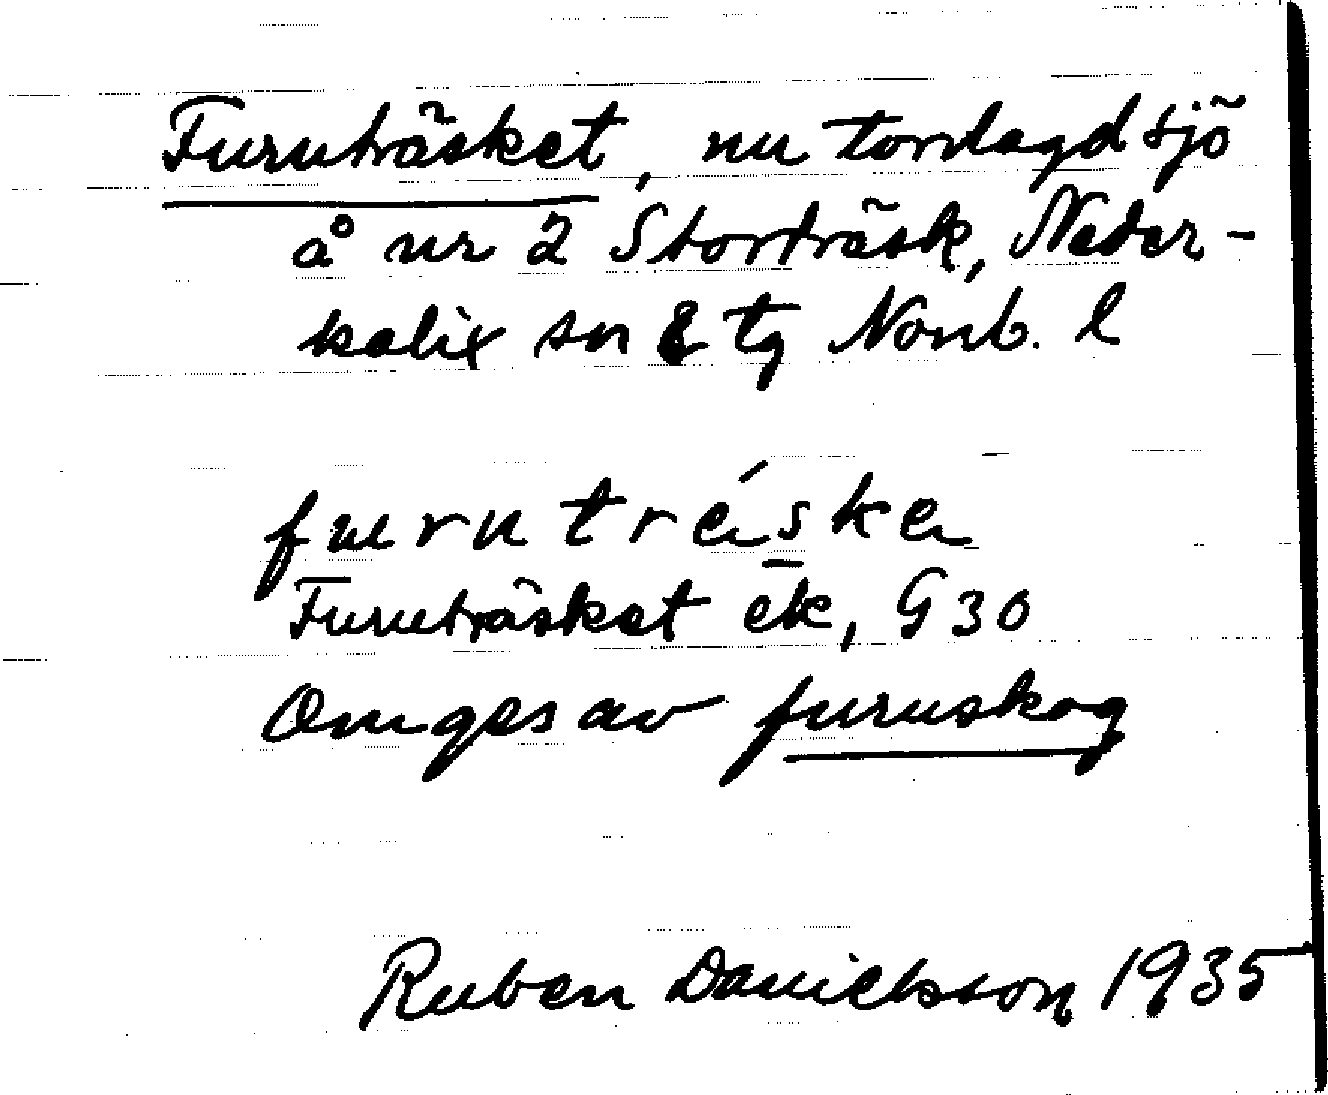 Furuträsket, nu torrlagd sjö
å nr 2 Storträsk, Neder-
kalix sn & tg Norrb. l
furutrǽskɶ
Furuträsket ek, G 30
Omges av furuskog
Ruben Danielsson 1935